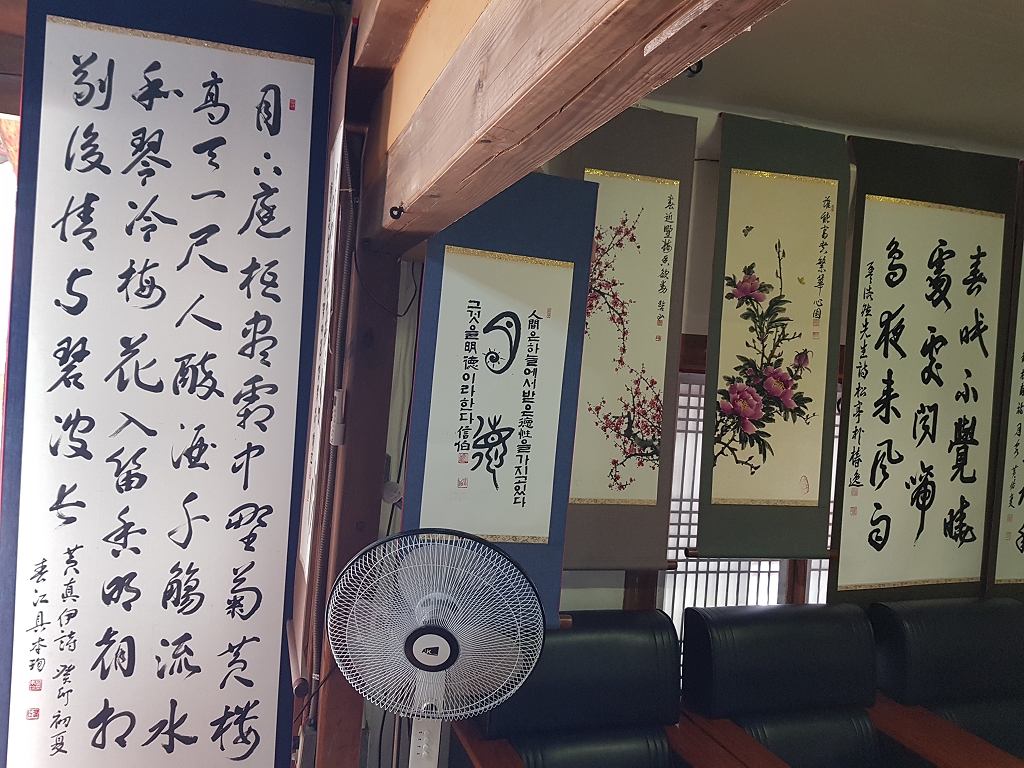 月下庭梧盡霜中野菊黃樓
高天一尺人醉酒千觴流水
和琴冷梅花入笛香明朝相
別後情与碧波長
黃真伊詩 癸卯初夏
春江具本
人間은하늘에서받은德性을가지고있다
그것을明德이라한다 信伯
春近野梅香欲動
心園
春眠不覺曉
處處聞啼
鳥夜來風雨
孟浩然先生詩 松亭朴椿逸